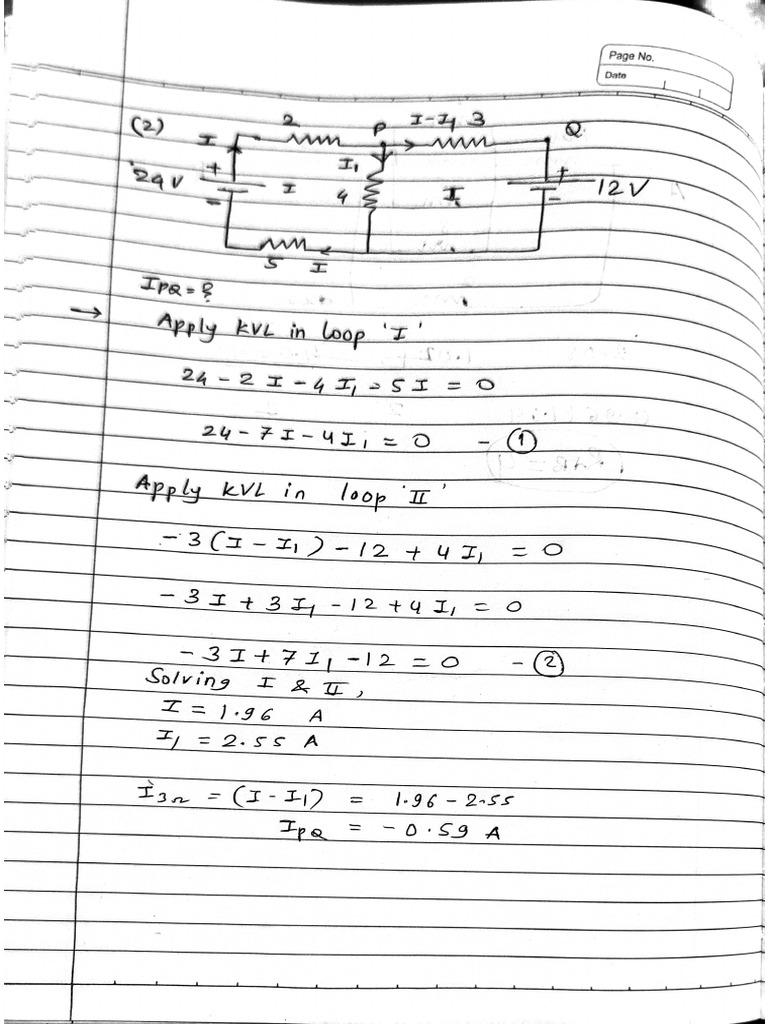 Page No.
Date
(2)
I 2 P I-I₁ 3 Q
I₁
+ 24 V - I 4 II + - 12V
5 I
I_PQ = ?
→ Apply KVL in loop 'I'
24 - 2 I - 4 I₁ - 5 I = 0
24 - 7 I - 4 I₁ = 0 - ①
Apply KVL in loop 'II'
- 3 (I - I₁) - 12 + 4 I₁ = 0
- 3 I + 3 I₁ - 12 + 4 I₁ = 0
- 3 I + 7 I₁ - 12 = 0 - ②
Solving I & II,
I = 1.96 A
I₁ = 2.55 A
I₃Ω = (I - I₁) = 1.96 - 2.55
I_PQ = - 0.59 A